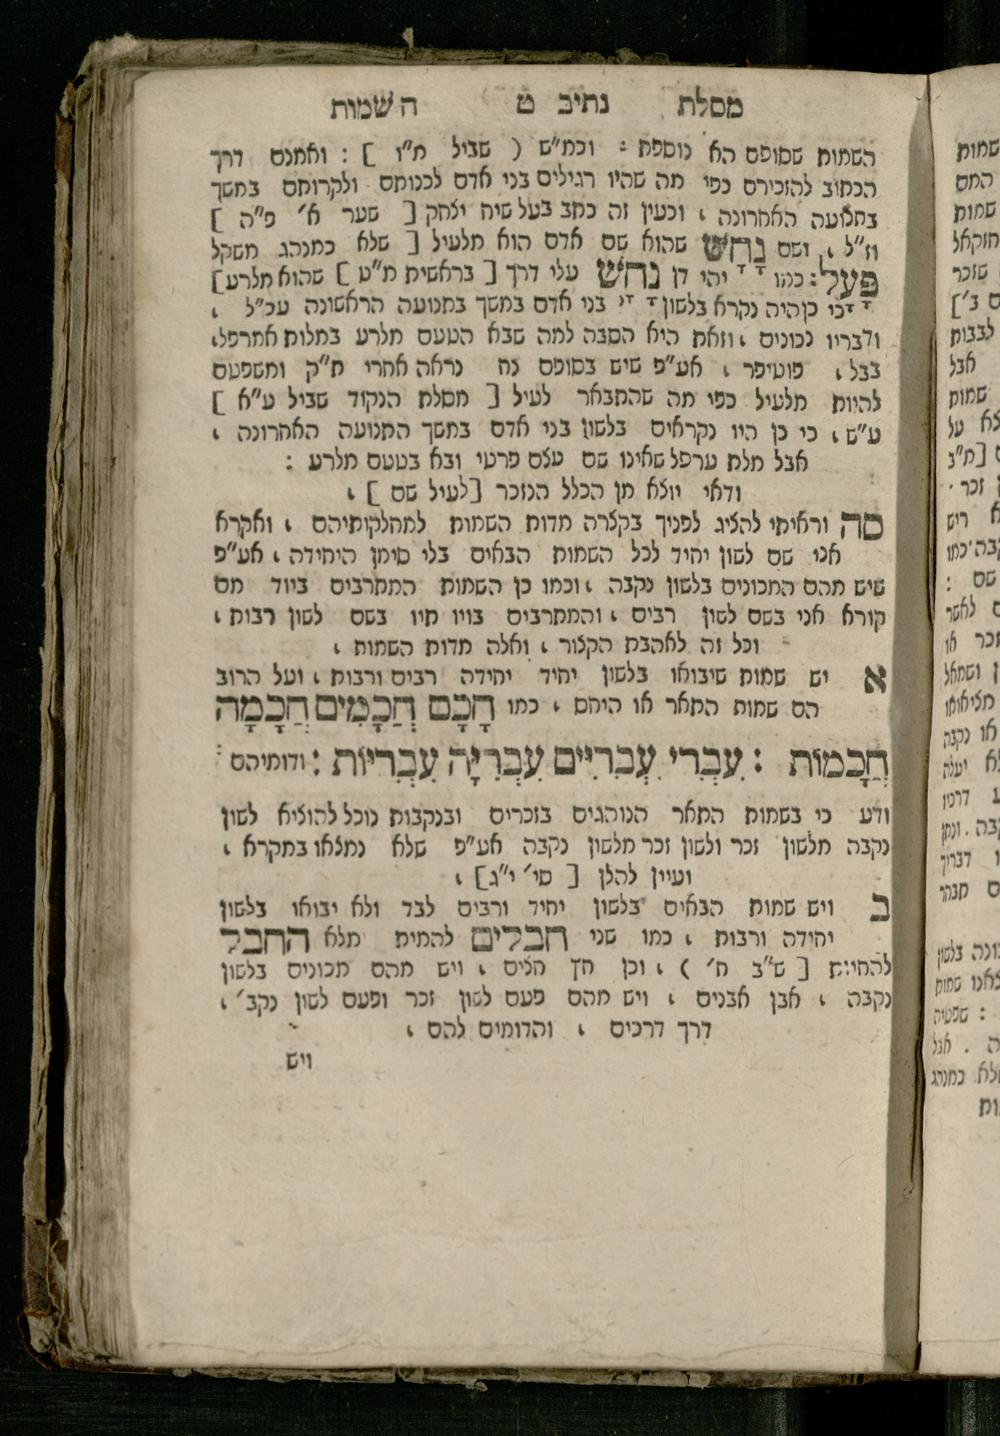 מסלת נתיב ט השמות
השמות שסופם הא נוספת : וכמ"ש ( שביל מ"ו ] : ואמנם דרך
הכתוב להזכירם כפי מה שהיו רגילים בני אדם לכנותם ולקרותם במשך
בתנועה האחרונה , וכעין זה כתב בעל שיח יצחק [ שער א' פ"ה ]
וז"ל , ושם נָחָשׁ שהוא שם אדם הוא מלעיל [ שלא כמנהג משקל
פָּעָל : כמו יהי דן נחש עלי דרך [ בראשית מ"ט ] שהוא מלרע]
כי כן היה נקרא בלשון בני אדם במשך בתנועה הראשונה עכ"ל ,
ודבריו נכונים , וזאת היא הסבה למה שבא הטעם מלרע במלות אמרפל,
בבל , פוטיפר , אע"פ שיש בסופם נח נראה אחרי ת"ק ומשפטם
להיות מלעיל כפי מה שהתבאר לעיל [ מסלת הנקוד שביל ע"א ]
ע"ש , כי כן היו נקראים בלשון בני אדם במשך התנועה האחרונה ,
אבל מלת ערפל שאינו שם עצם פרטי ובא בטעם מלרע :
ודאי יוצא מן הכלל הנזכר [לעיל שם ] ,
סה וראיתי להציג לפניך בקצרה מדות השמות למחלקותיהם , ואקרא
אני שם לשון יחיד לכל השמות הבאים בלי סימן היחידה , אע"פ
שיש מהם המכונים בלשון נקבה , וכמו כן השמות המתרבים ביוד מם
קורא אני בשם לשון רבים , והמתרבים בויו תיו בשם לשון רבות ,
וכל זה לאהבת הקצור , ואלה מדות השמות ,
א יש שמות שיבואו בלשון יחיד יחידה רבים ורבות , ועל הרוב
הם שמות התאר או היחס , כמו חָכָם חֲכָמִים חֲכָמָה
חֲכָמוֹת : עִבְרִי עִבְרִיִּים עִבְרִיָּה עִבְרִיּוֹת : ודומיהם :
ודע כי בשמות התאר הנוהגים בזכרים ובנקבות נוכל להוציא לשון
נקבה מלשון זכר ולשון זכר מלשון נקבה אע"פ שלא נמצאו במקרא ,
ועיין להלן [ סי' י"ג] ,
ב ויש שמות הבאים בלשון יחיד ורבים לבד ולא יבואו בלשון
יחידה ורבות , כמו שני חבלים להמית מלא החבל
להחיות [ ש"ב ח' ) , וכן חץ חצים , ויש מהם מכונים בלשון
נקבה , אבן אבנים , ויש מהם פעם לשון זכר ופעם לשון נקב' ,
דרך דרכים , והדומים להם ,
ויש